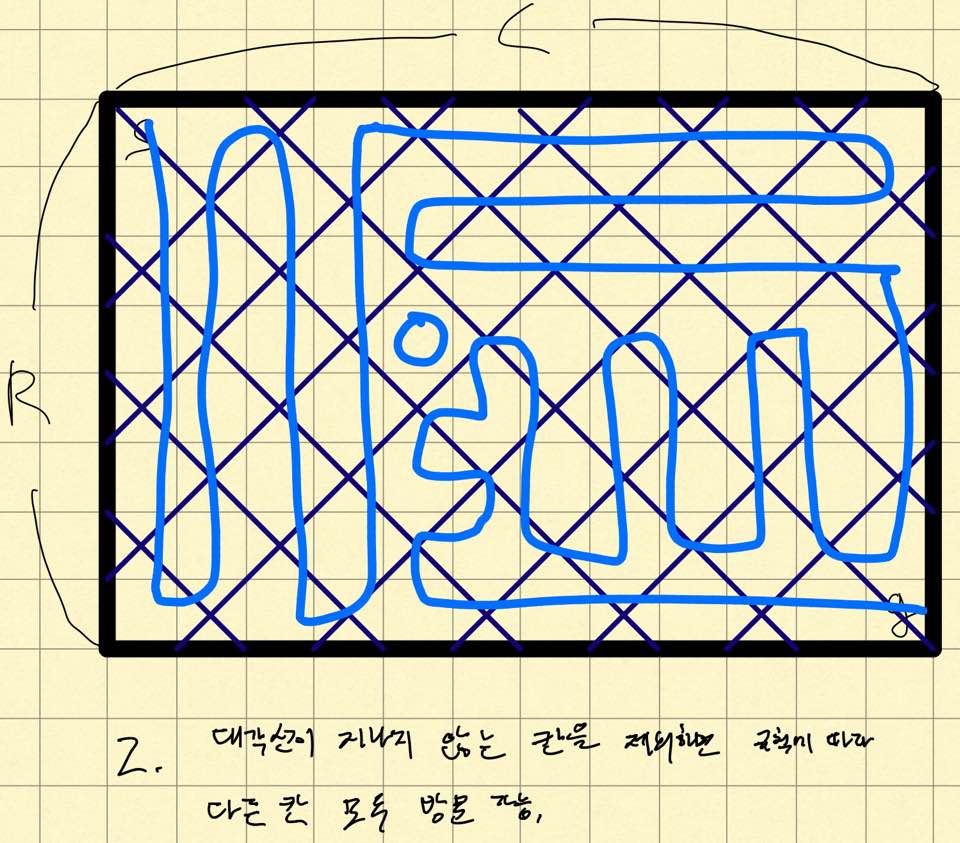 C
S
R
g
2. 대각선이 지나지 않는 칸을 제외하면 규칙에 따라
다른 칸 모두 방문 가능.